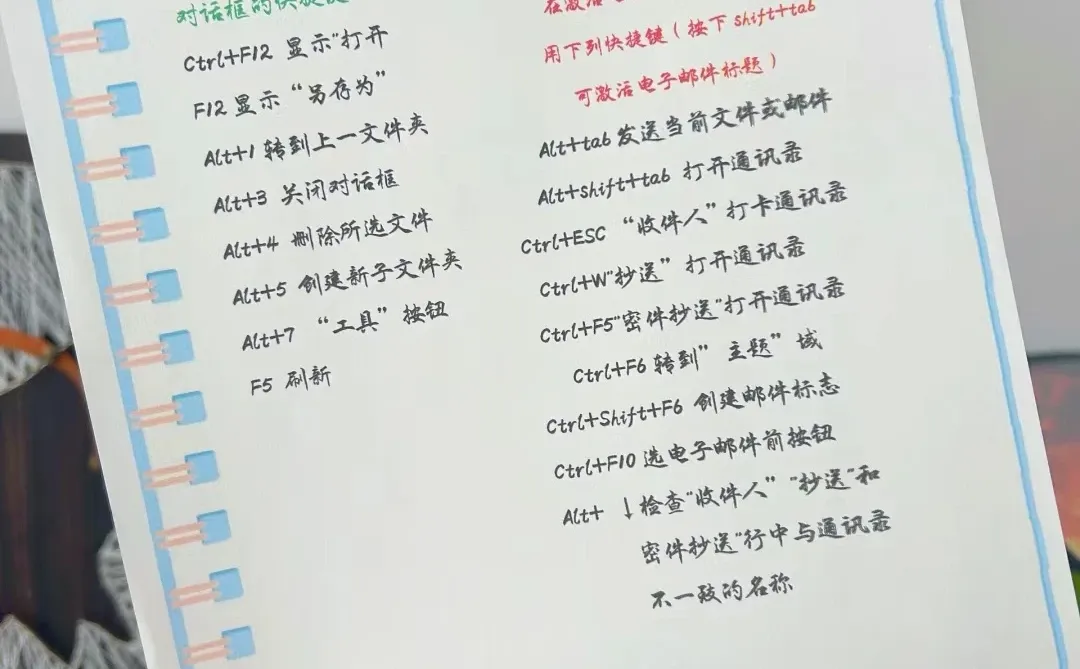 对话框的快捷键
Ctrl+F12 显示"打开
F12 显示 "另存为"
Alt+1 转到上一文件夹
Alt+3 关闭对话框
Alt+4 删除所选文件
Alt+5 创建新子文件夹
Alt+7 "工具" 按钮
F5 刷新
在激活
用下列快捷键（按下 shift+tab
可激活电子邮件标题）
Alt+tab 发送当前文件或邮件
Alt+shift+tab 打开通讯录
Ctrl+ESC "收件人" 打卡通讯录
Ctrl+W"抄送" 打开通讯录
Ctrl+F5"密件抄送"打开通讯录
Ctrl+F6 转到" 主题" 域
Ctrl+Shift+F6 创建邮件标志
Ctrl+F10 选电子邮件前按钮
Alt+ ↓检查"收件人" "抄送"和
密件抄送"行中与通讯录
不一致的名称